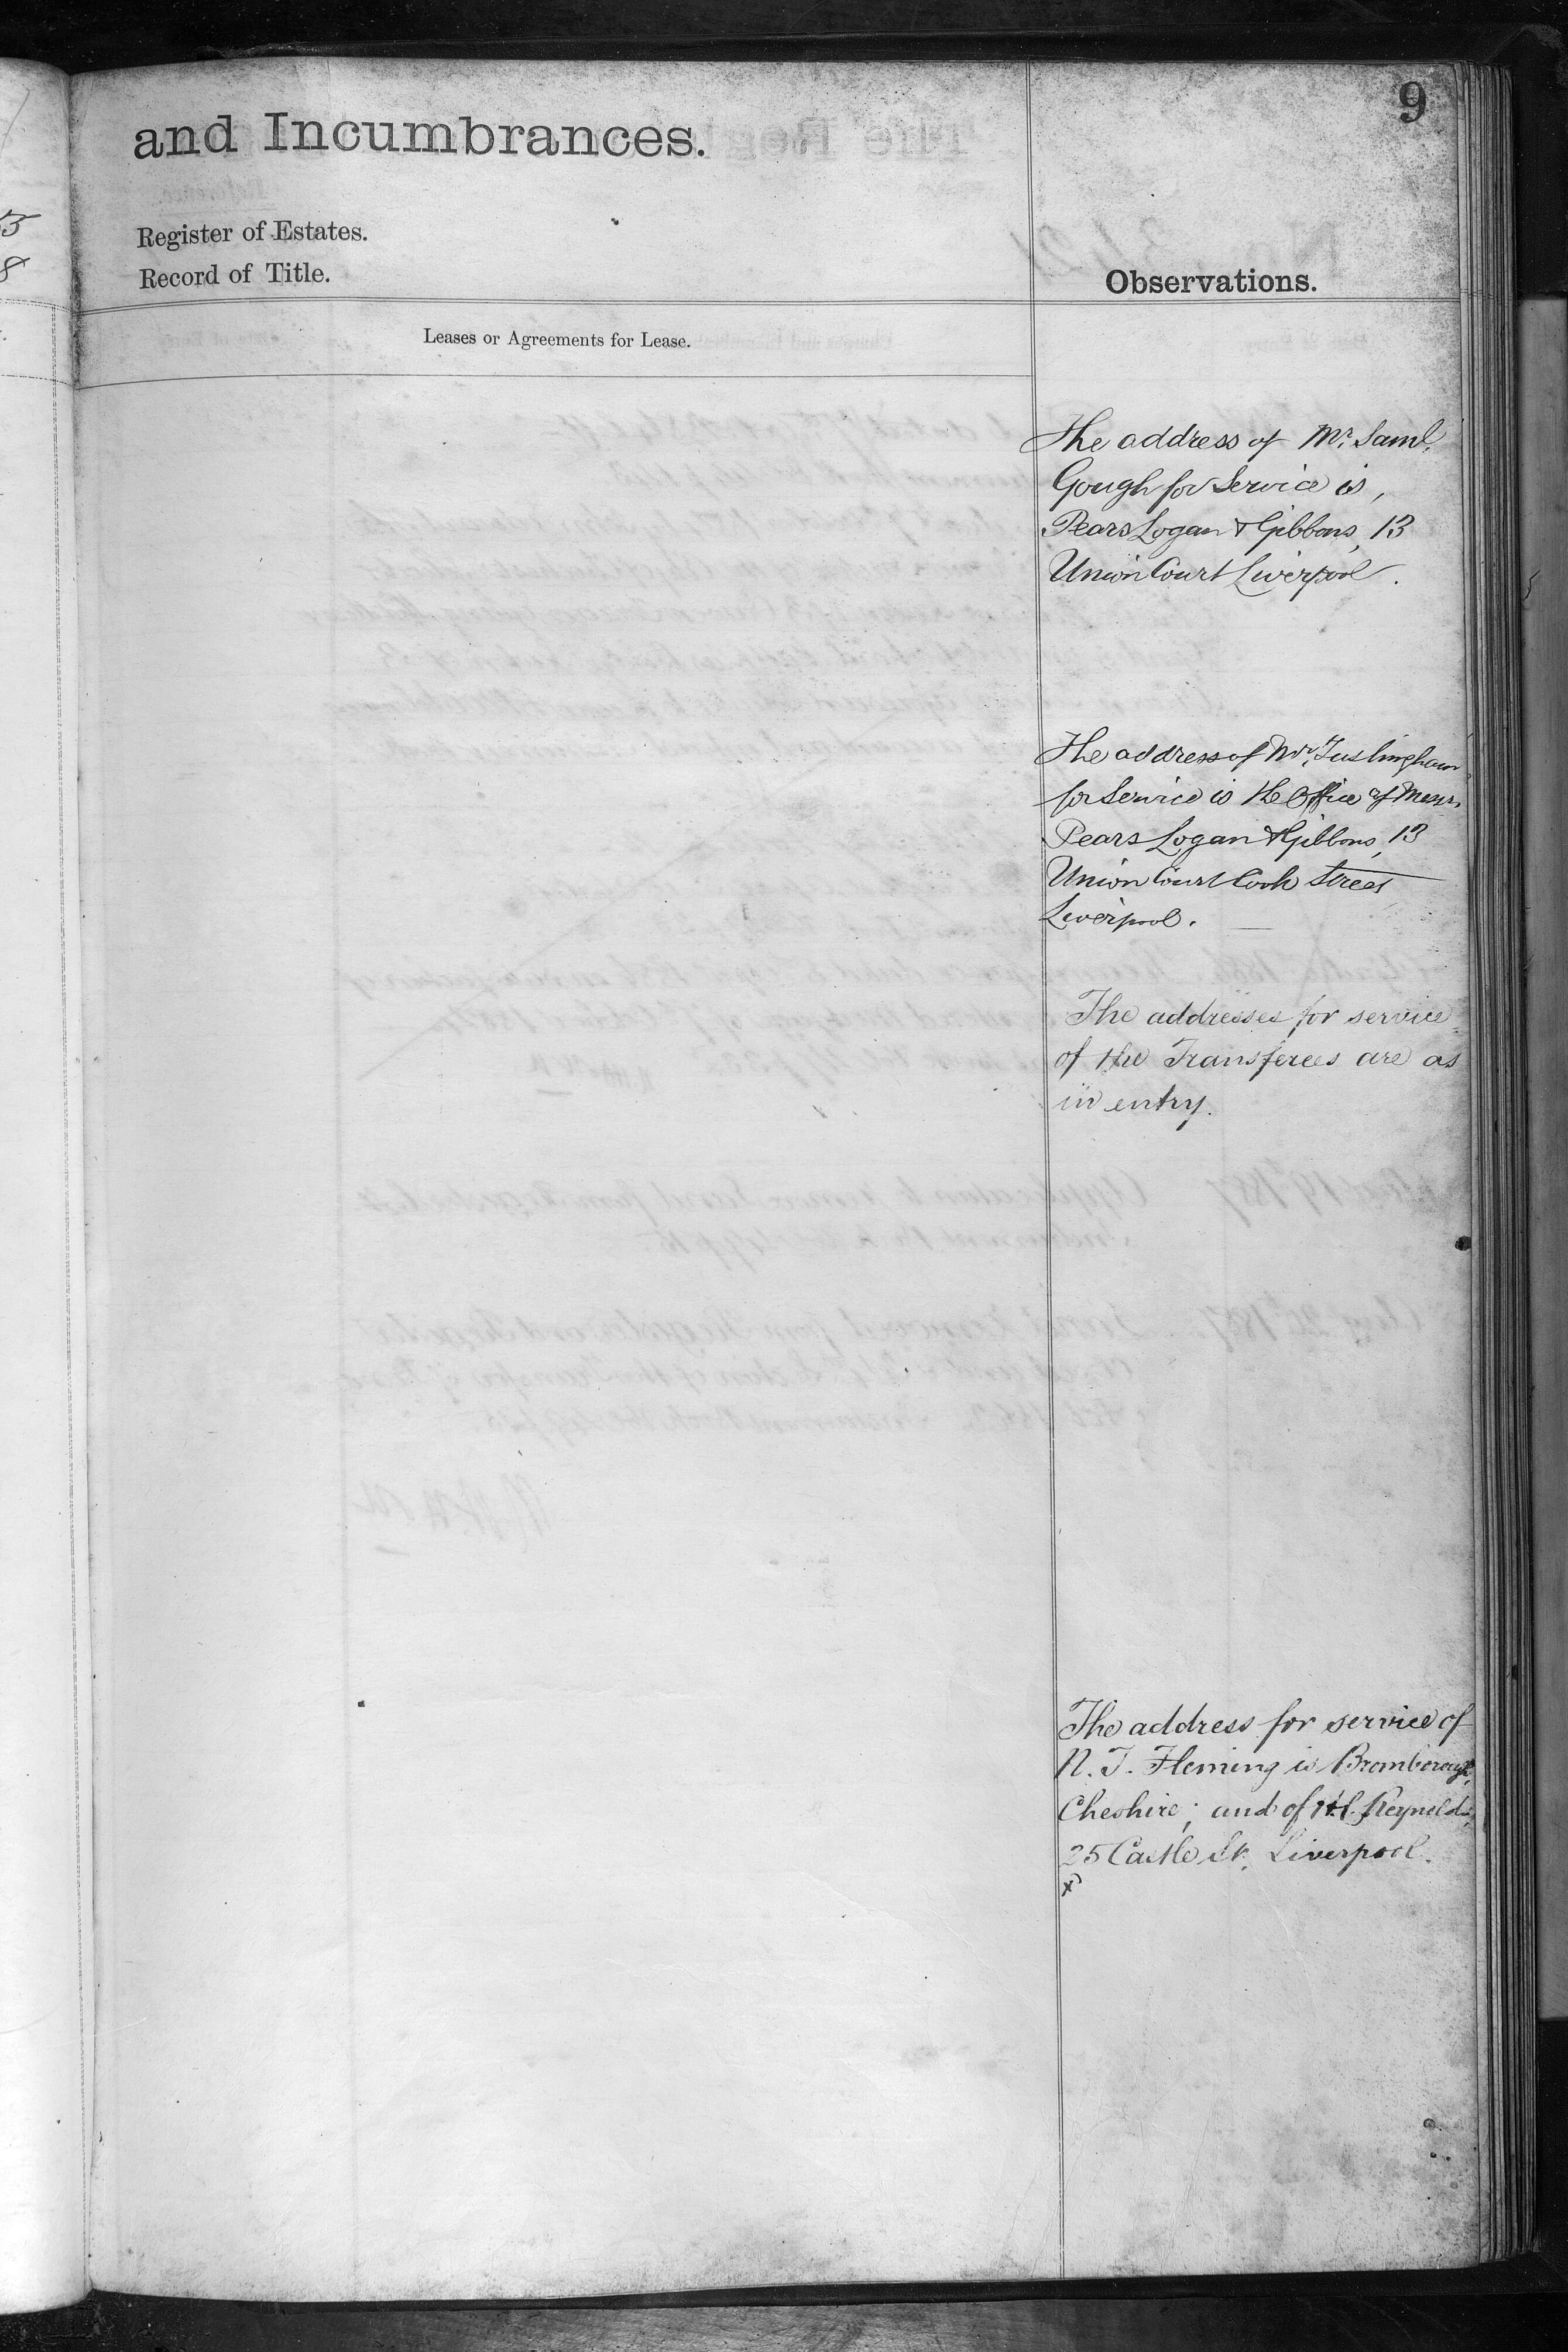 9
and Incumbrances.
Register of Estates.
Record of Title.
Observations.
Leases or Agreements for Lease.
The address of Mr. Saml.
Gough for Service is,
Pears Logan & Gibbons, 13
Union Court Liverpool.
The address of Mr. Tuslingham
for Service is the Office of Messrs
Pears Logan & Gibbons, 13
Union Court Cook Street
Liverpool.
The addresses for service
of the Transferees are as
in entry.
The address for service of
N. T. Fleming is Bromborough,
Cheshire; and of Reynolds,
25 Castle St. Liverpool.
x